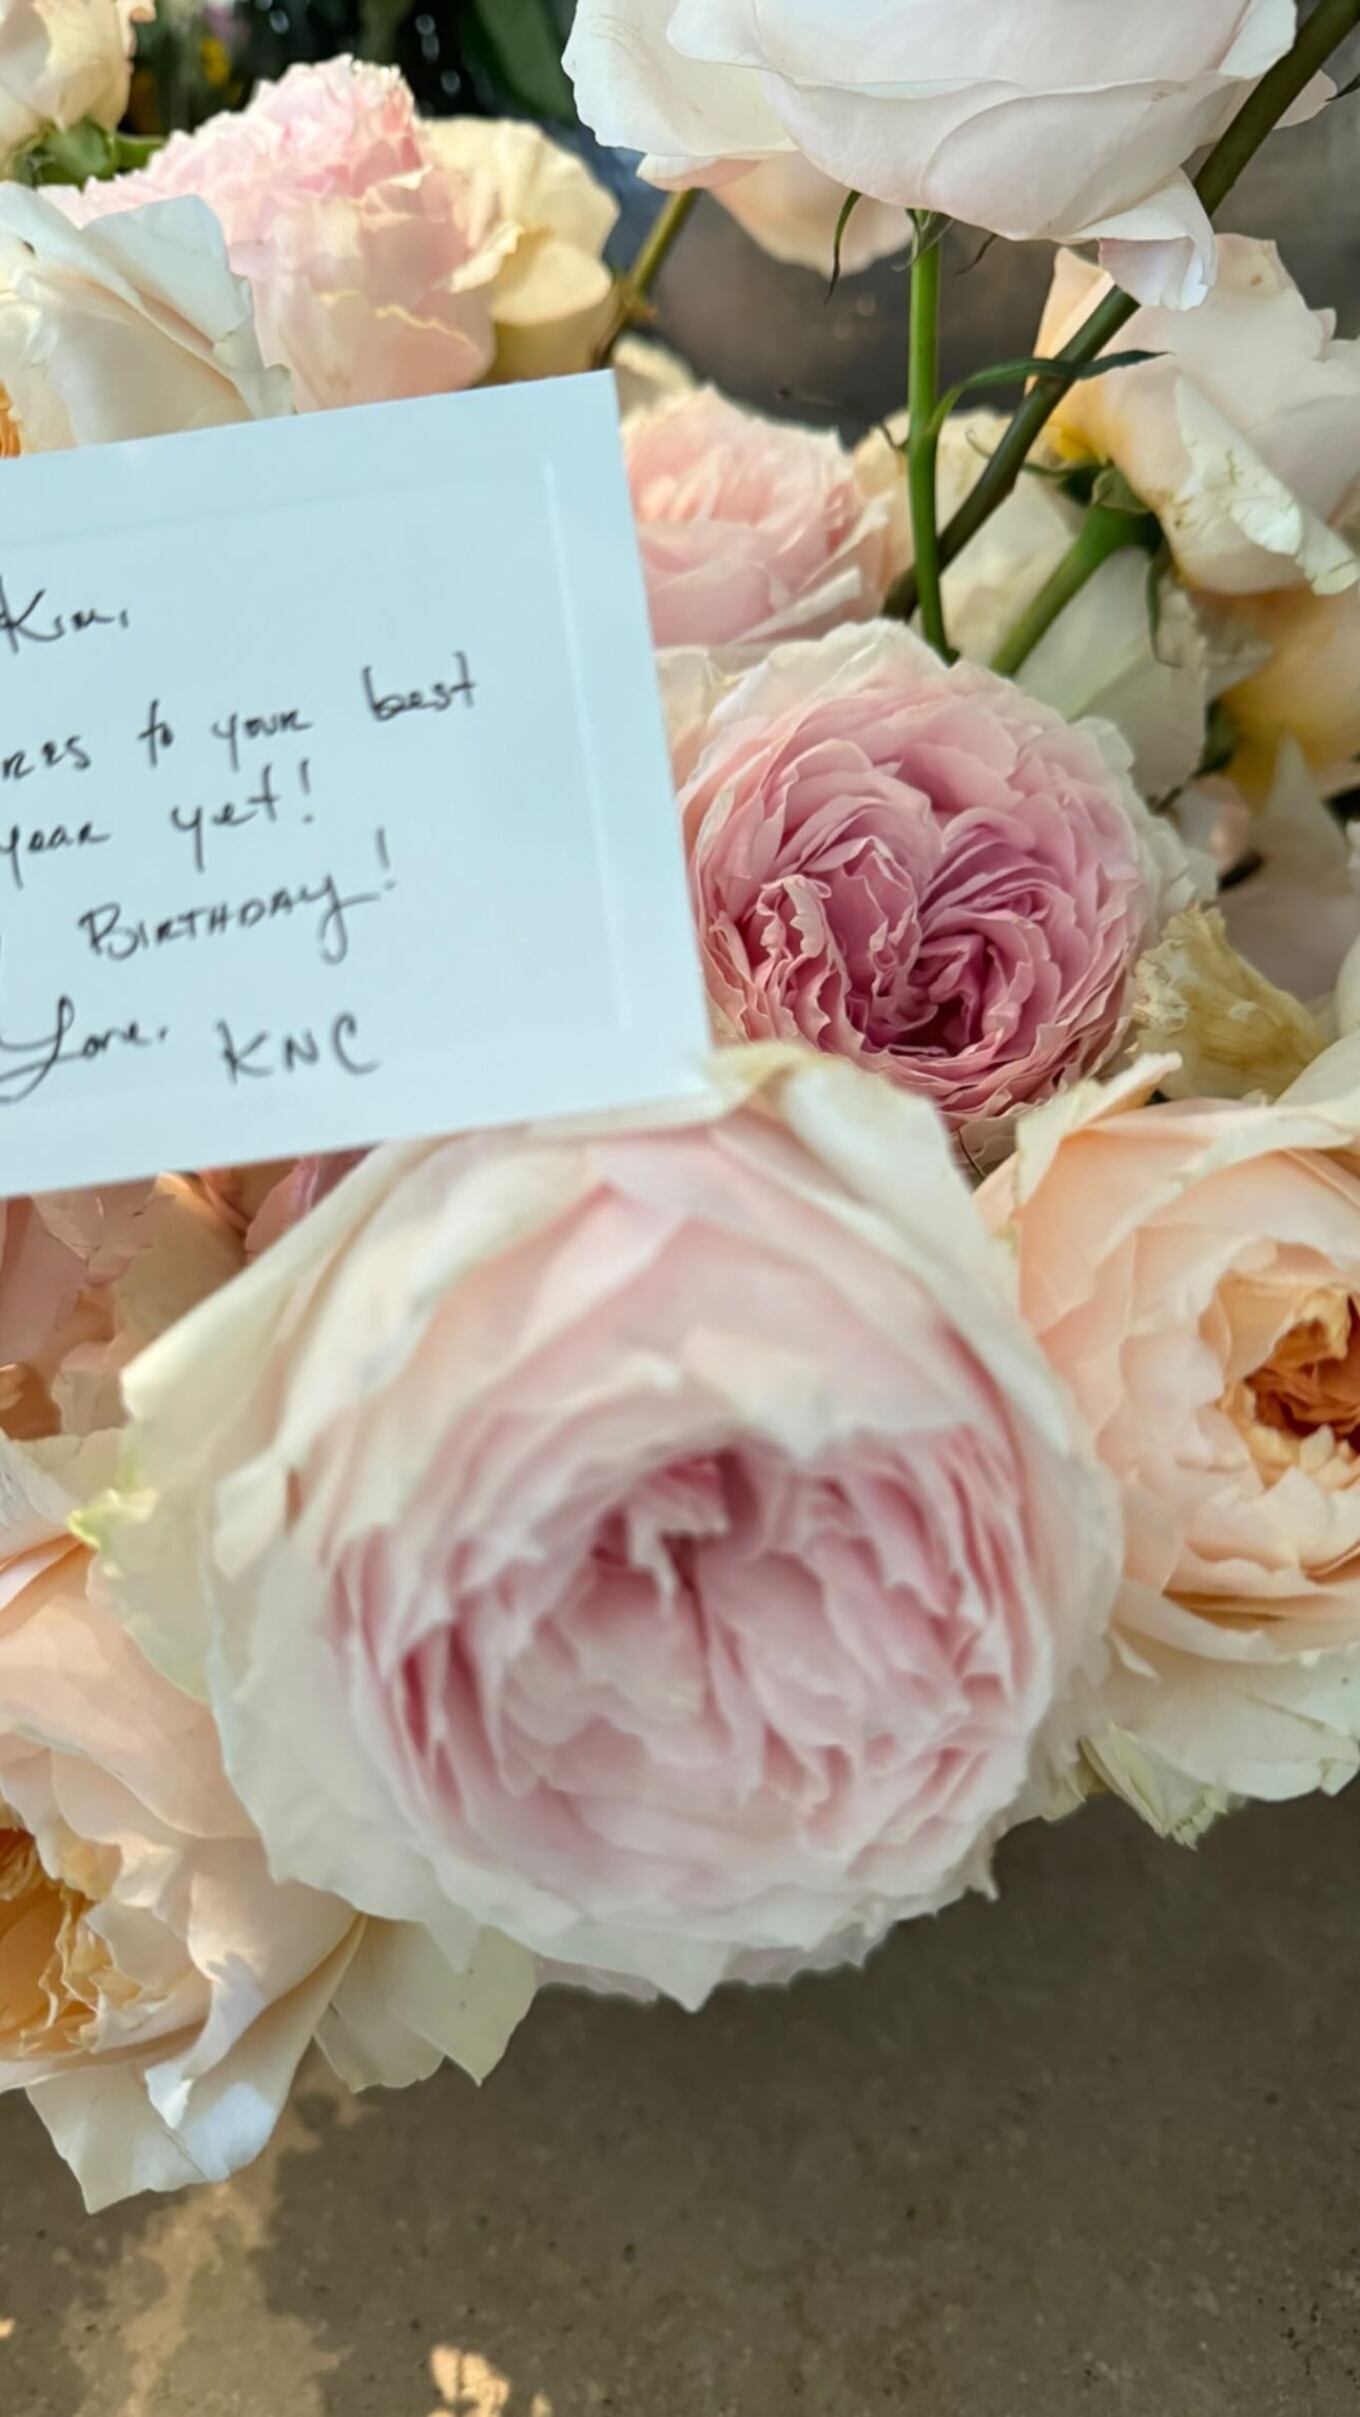 Kim,
res to your best
year yet!
Birthday!
Love. KNC